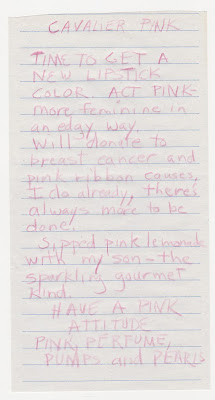 CAVALIER PINK
TIME TO GET A
NEW LIPSTICK
COLOR. ACT PINK-
more feminine in
an edgy way.
Will donate to
breast cancer and
pink ribbon causes,
I do already, there's
always more to be
done!
Sipped pink lemonade
with my son - the
sparkling gourmet
kind.
HAVE A PINK
ATTITUDE
PINK, PERFUME,
PUMPS and PEARLS